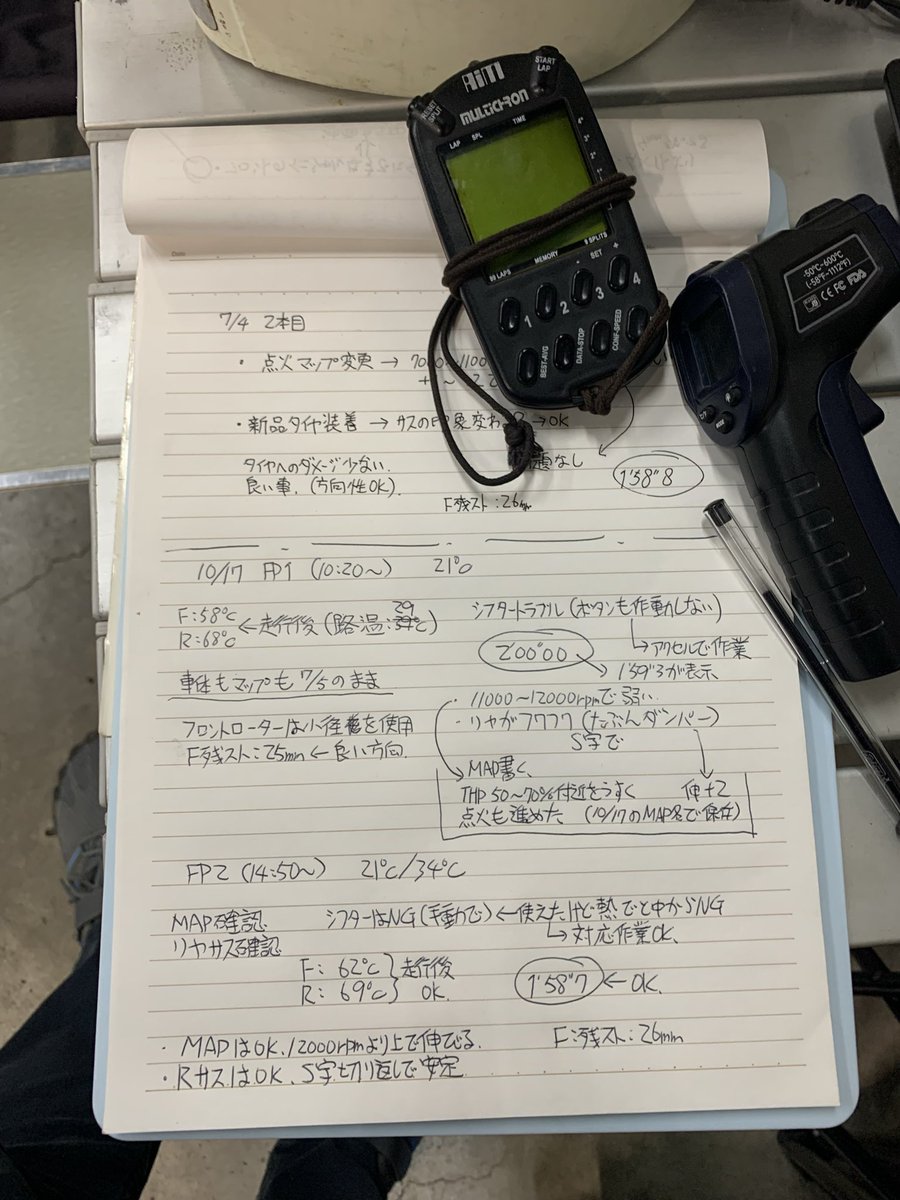 AiM
MULTICHRON
START
LAP
RESET
SPLIT
LAP SPL TIME
4°
3°
2°
99 LAPS MEMORY 9 SPLITS
- SET +
1 2 3 4
BEST-AVG
DATA-STOP
CONF-SPEED
-50℃~600℃
(-58°F~1112°F)
CE FC FDA
Date
7/4 2本目
・点火マップ変更 →
・新品タイヤ装着 → サスの 変わ → OK
タイヤへのダメージ少ない.
良い車. (方向性OK).
なし
1'58"8
F残スト:26mm
10/17 FP1 (10:20~) 21℃
F:58℃
R:68℃
←走行後 (路温:29℃)
シフタートラブル (ボタンも作動しない)
→アクセルで作業
2'00"00
1'59"3が表示
車体もマップも7/5のまま
・11000~12000rpmで弱い.
・リヤがフワフワ (たぶんダンパー)
S字で
フロントローターは小径を使用
F残スト:25mm ← 良い方向.
MAP書く、
THP 50~70%付近をうすく 伸+2
点火も進めた (10/17のMAP名で保存)
FP2 (14:50~) 21℃/34℃
MAP確認 シフターはNG (手動で) ←使えたけど熱でと中からNG
リヤサス確認 →対応作業OK.
F: 62℃
R: 69℃
走行後
OK.
1'58"7 ← OK.
・MAPはOK、12000rpmより上で伸びる. F:残スト:26mm
・RサスはOK、S字切り返しで安定